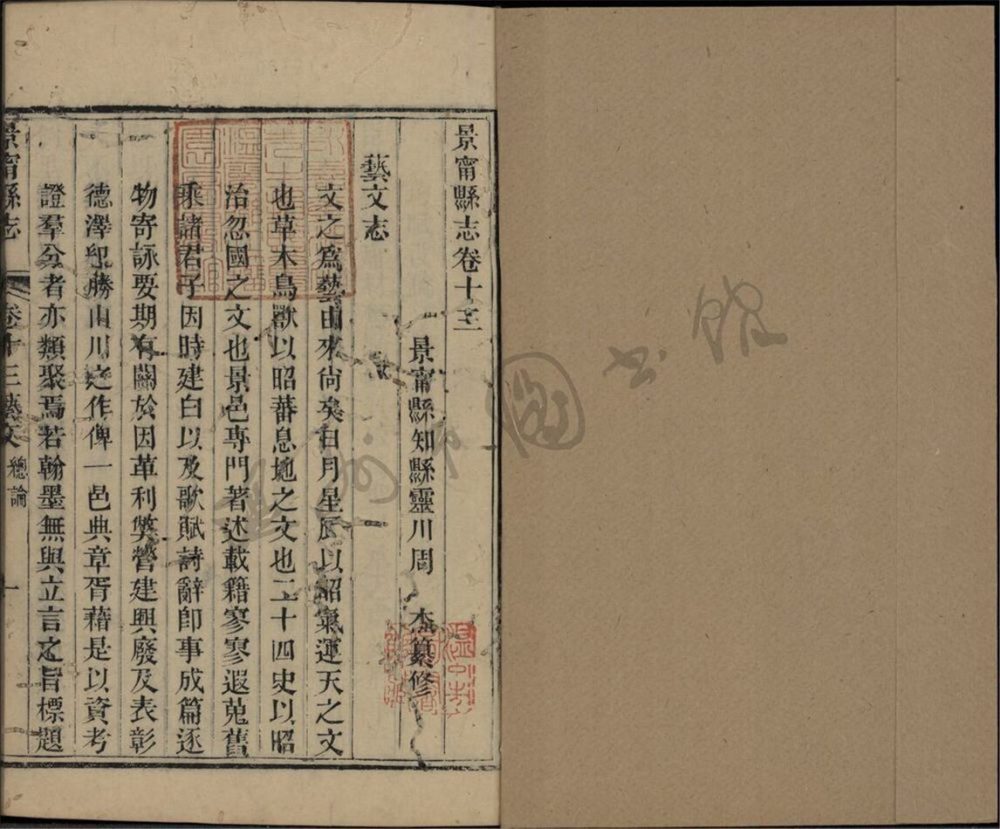 景甯縣志卷十三
景甯縣知縣靈川周 杰纂修
藝文志
文之爲藝由來尙矣日月星辰以紹氣運天之文
也草木鳥獸以昭蕃息地之文也二十四史以昭
治忽國之文也景邑專門著述載籍寥寥遐蒐舊
乘諸君子因時建白以及歌賦詩辭卽事成篇逐
物寄詠要期有關於因革利獘營建興廢及表彰
德澤紀勝山川之作俾一邑典章胥藉是以資考
證羣分者亦類聚焉若翰墨無與立言之旨標題
景甯縣志
卷十三藝文 總論 一
圖書館